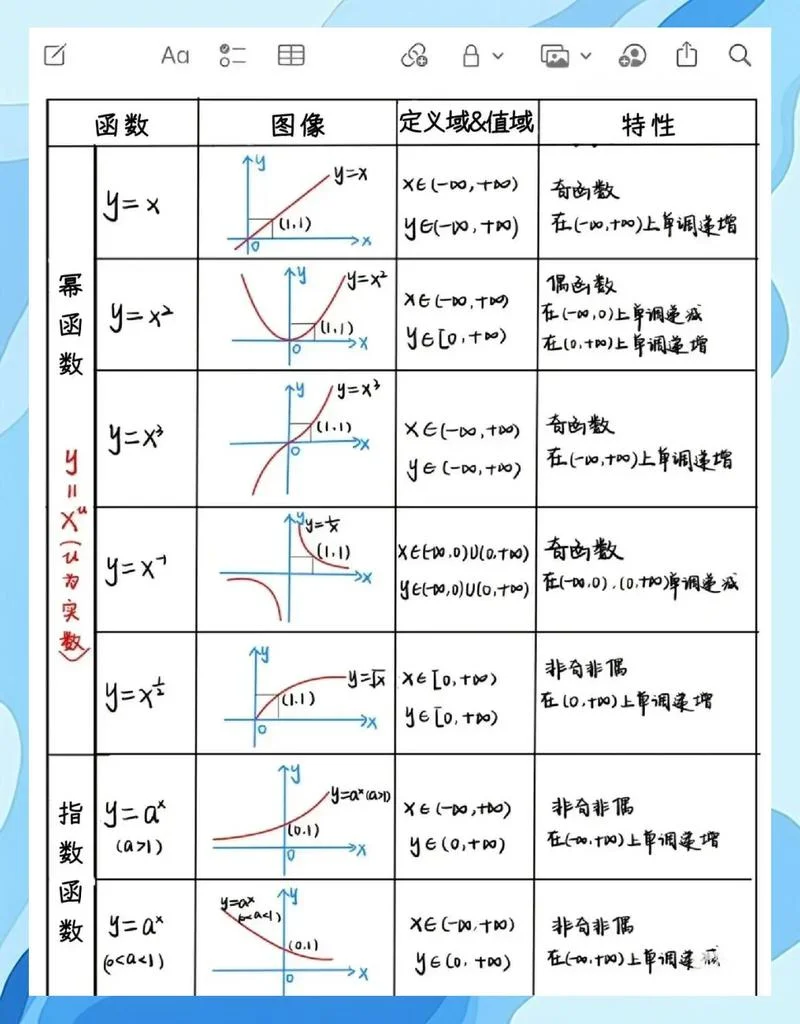 Aa
函数 图像 定义域&值域 特性
幂函数
y=xᵘ(u为实数)
y=x
y
y=x
(1,1)
0
x
x∈(-∞,+∞)
y∈(-∞,+∞)
奇函数
在(-∞,+∞)上单调递增
y=x²
y
y=x²
(1,1)
0
x
x∈(-∞,+∞)
y∈[0,+∞)
偶函数
在(-∞,0)上单调递减
在(0,+∞)上单调递增
y=x³
y
y=x³
(1,1)
0
x
x∈(-∞,+∞)
y∈(-∞,+∞)
奇函数
在(-∞,+∞)上单调递增
y=x⁻¹
y
y=1/x
(1,1)
0
x
x∈(-∞,0)∪(0,+∞)
y∈(-∞,0)∪(0,+∞)
奇函数
在(-∞,0),(0,+∞)单调递减
y=x^½
y
y=√x
(1,1)
0
x
x∈[0,+∞)
y∈[0,+∞)
非奇非偶
在(0,+∞)上单调递增
指数函数
y=aˣ
(a>1)
y
y=aˣ(a>1)
(0,1)
0
x
x∈(-∞,+∞)
y∈(0,+∞)
非奇非偶
在(-∞,+∞)上单调递增
y=aˣ
(0<a<1)
y
y=aˣ
0<a<1)
(0,1)
0
x
x∈(-∞,+∞)
y∈(0,+∞)
非奇非偶
在(-∞,+∞)上单调递减